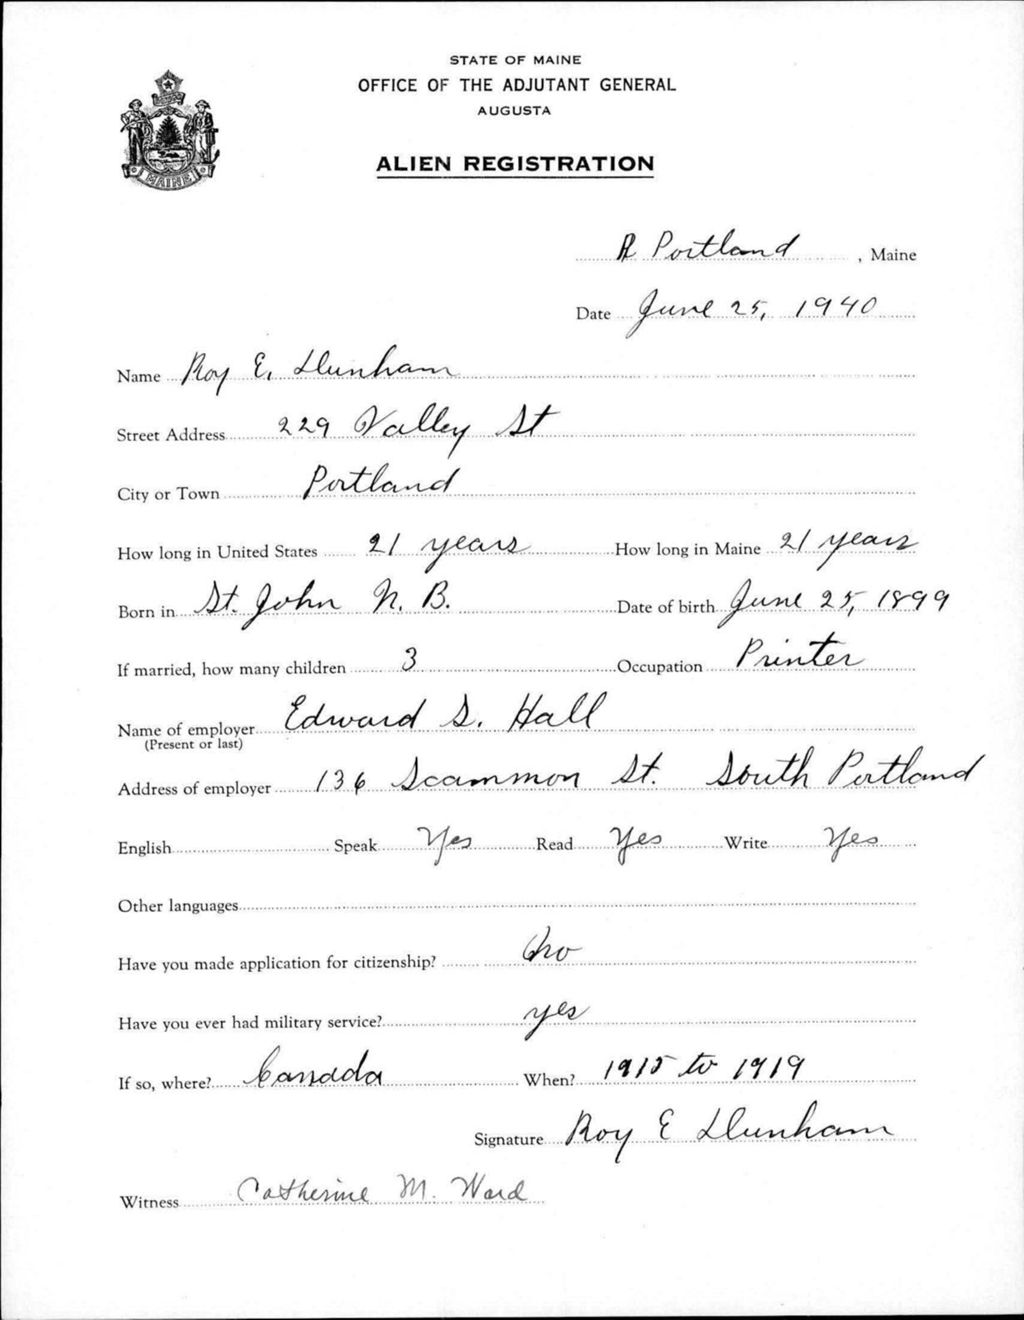 STATE OF MAINE
OFFICE OF THE ADJUTANT GENERAL
AUGUSTA
ALIEN REGISTRATION
MAINE
Portland, Maine
Date June 25, 1940
Name Roy E. Dunham
Street Address 229 Valley St
City or Town Portland
How long in United States 21 years How long in Maine 21 years
Born in St. John N. B. Date of birth June 25, 1899
If married, how many children 3 Occupation Printer
Name of employer Edward S. Hall
(Present or last)
Address of employer 136 Scammon St. South Portland
English Speak Yes Read Yes Write Yes
Other languages
Have you made application for citizenship? No
Have you ever had military service? yes
If so, where? Canada When? 1915 to 1919
Signature Roy E Dunham
Witness Catherine M. Ward